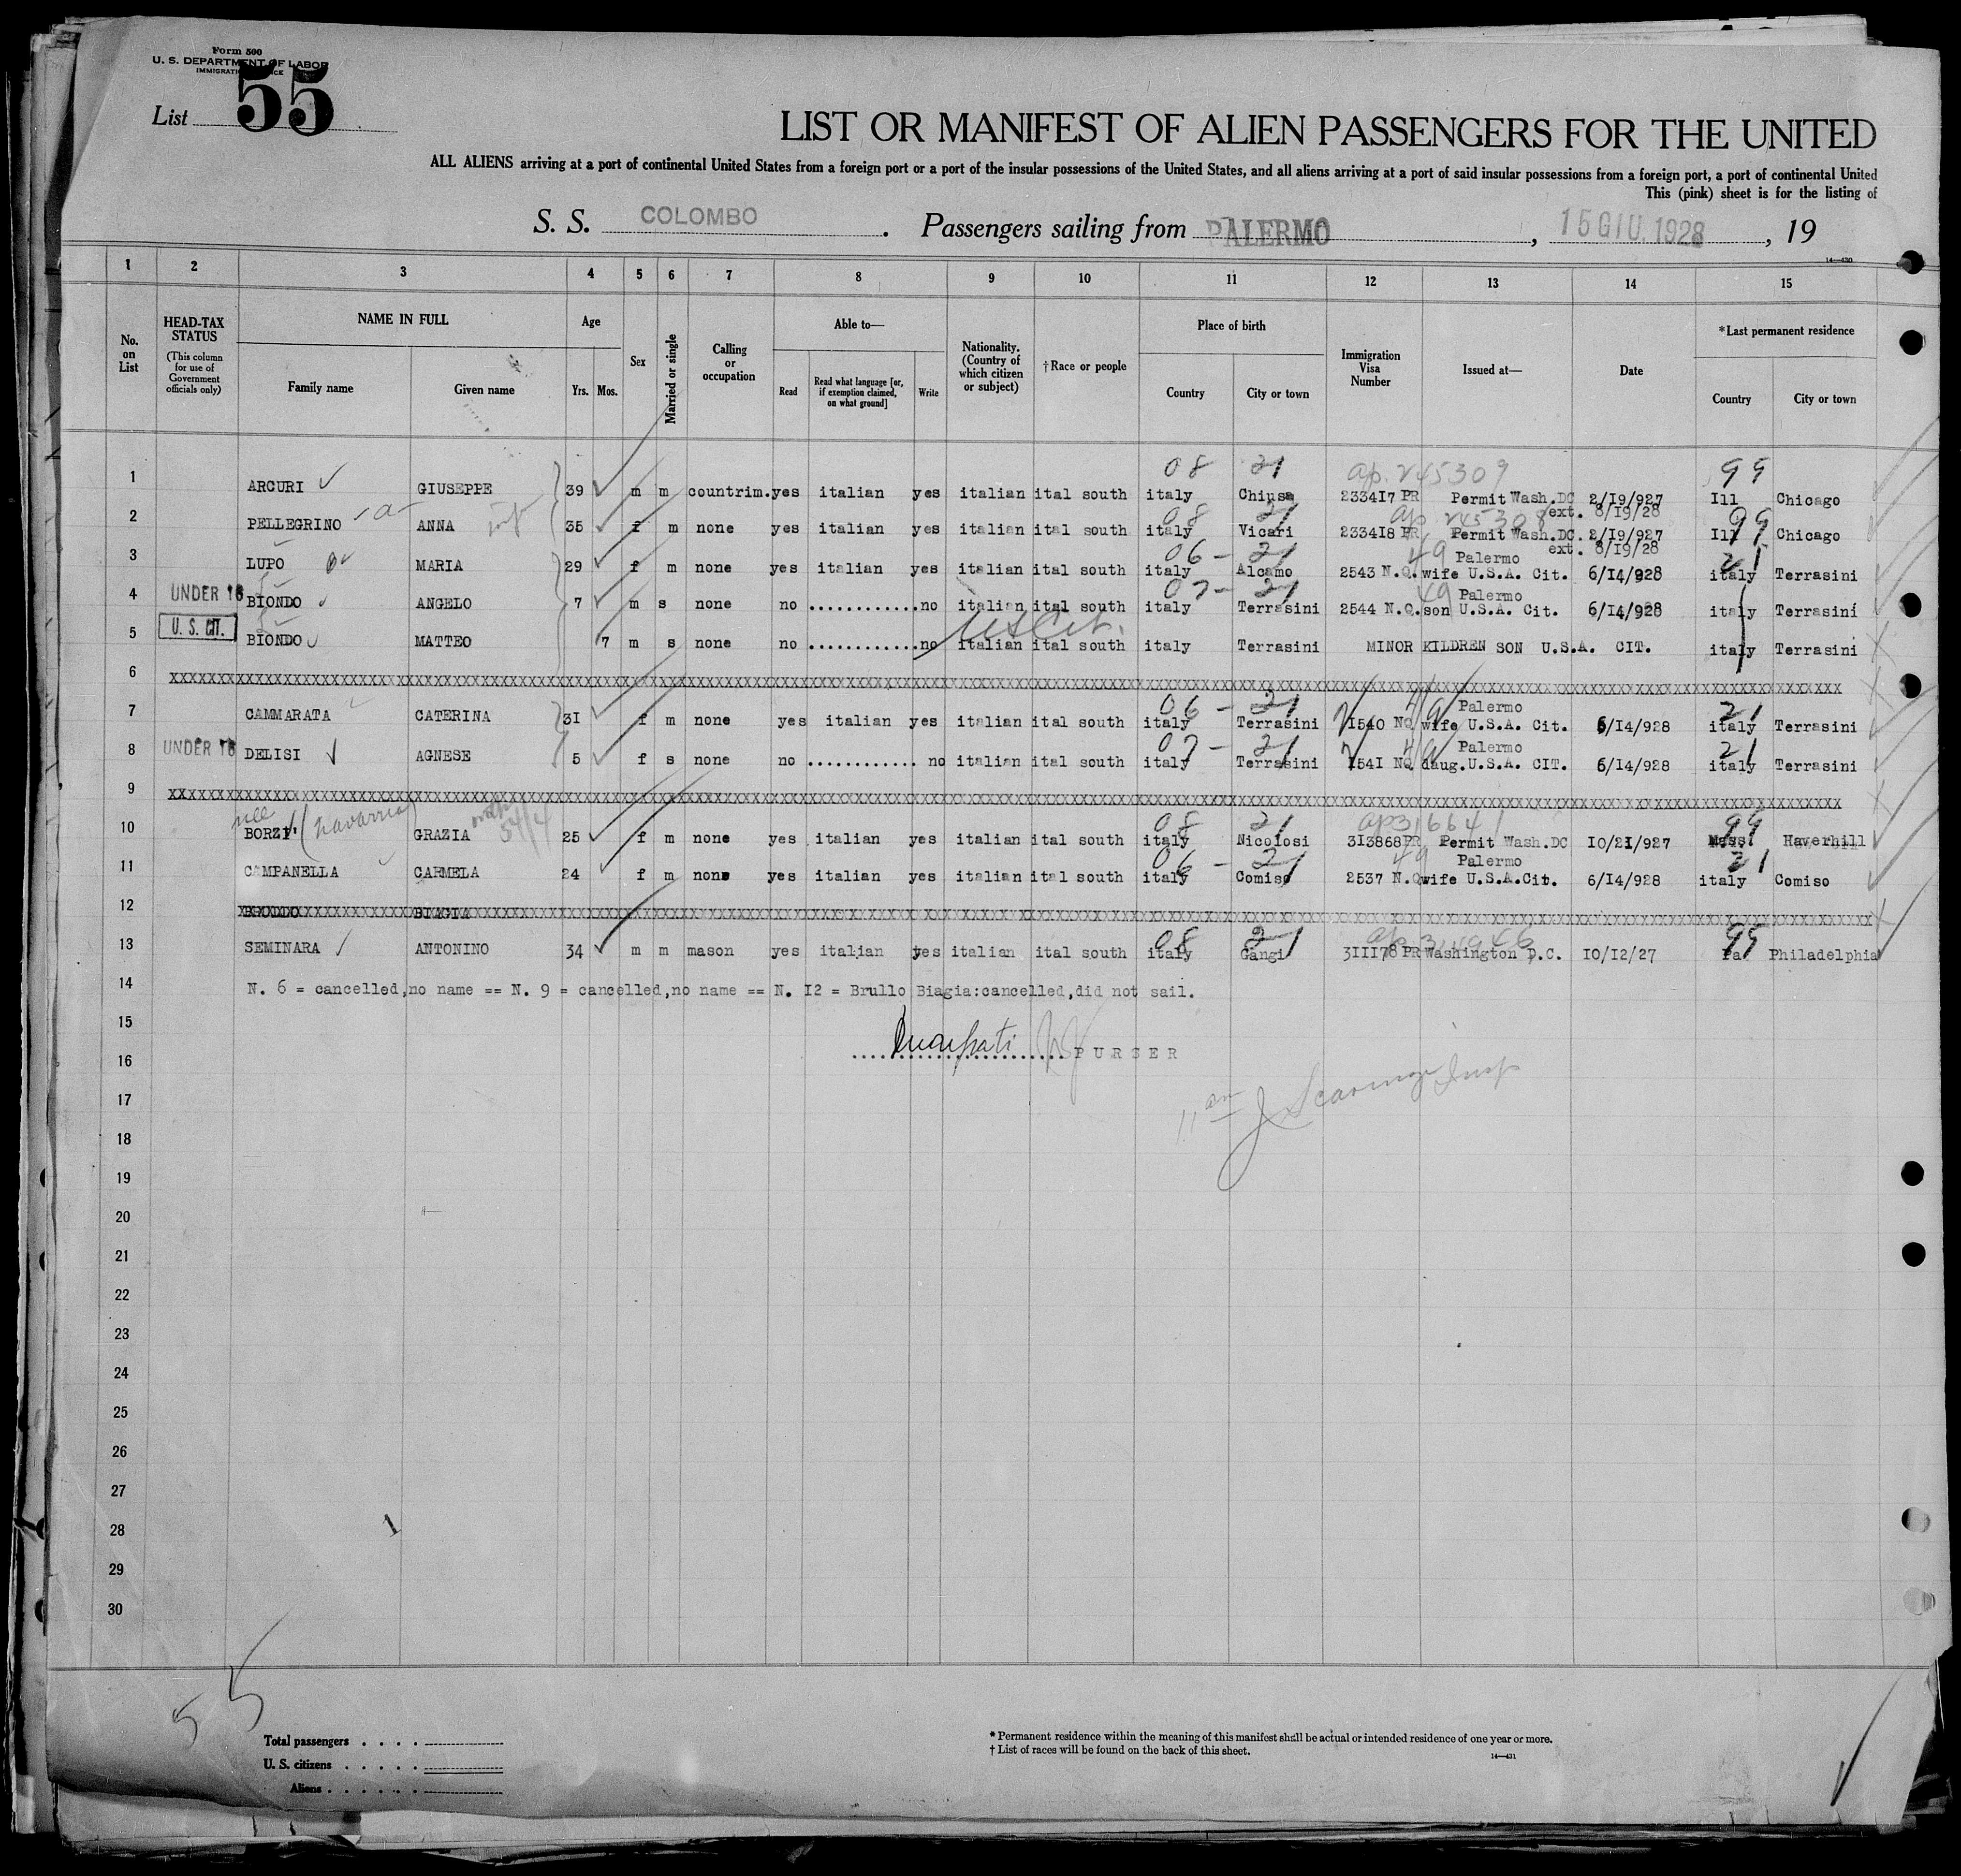 Form 500
U. S. DEPARTMENT OF LABOR
IMMIGRATION SERVICE
List 55
LIST OR MANIFEST OF ALIEN PASSENGERS FOR THE UNITED
ALL ALIENS arriving at a port of continental United States from a foreign port or a port of the insular possessions of the United States, and all aliens arriving at a port of said insular possessions from a foreign port, a port of continental United
This (pink) sheet is for the listing of
S. S. COLOMBO. Passengers sailing from PALERMO, 15 GIU. 1928, 19
14—430
1 2 3 4 5 6 7 8 9 10 11 12 13 14 15
No. on List
HEAD-TAX STATUS (This column for use of Government officials only)
NAME IN FULL Family name Given name
Age Yrs. Mos.
Sex
Married or single
Calling or occupation
Able to— Read Read what language [or, if exemption claimed, on what ground] Write
Nationality. (Country of which citizen or subject)
†Race or people
Place of birth Country City or town
Immigration Visa Number
Issued at—
Date
*Last permanent residence Country City or town
08 21 ap. 245309 99
1 ARCURI GIUSEPPE 39 m m countrim. yes italian yes italian ital south italy Chiusa 233417 PR Permit Wash.DC 2/19/927 Ill Chicago
ext. 8/19/28
08 21 ap 245308 99
2 PELLEGRINO ANNA 35 f m none yes italian yes italian ital south italy Vicari 233418 PR Permit Wash.DC. 2/19/927 Ill Chicago
ext. 8/19/28
06 - 21 49 Palermo 21
3 LUPO MARIA 29 f m none yes italian yes italian ital south italy Alcamo 2543 N.Q. wife U.S.A. Cit. 6/14/928 italy Terrasini
07 - 21 49 Palermo
4 UNDER 16 BIONDO ANGELO 7 m s none no ............ no italian ital south italy Terrasini 2544 N.Q. son U.S.A. Cit. 6/14/928 italy Terrasini
US Cit.
5 U. S. CIT. BIONDO MATTEO 7 m s none no ............ no italian ital south italy Terrasini MINOR KILDREN SON U.S.A. CIT. italy Terrasini
6 XXXXXXXXXXXXXXXXXXXXXXXXXXXXXXXXXXXXXXXX
06 - 21 49 Palermo 21
7 CAMMARATA CATERINA 31 f m none yes italian yes italian ital south italy Terrasini 1540 NQ wife U.S.A. Cit. 6/14/928 italy Terrasini
07 - 21 49 Palermo 21
8 UNDER 16 DELISI AGNESE 5 f s none no ............ no italian ital south italy Terrasini 1541 NQ daug. U.S.A. CIT. 6/14/928 italy Terrasini
9 XXXXXXXXXXXXXXXXXXXXXXXXXXXXXXXXXXXXXXXX
nee navarria 08 21 ap316641 99
10 BORZI' GRAZIA 25 f m none yes italian yes italian ital south italy Nicolosi 313868 PR Permit Wash.DC 10/21/927 Mass. Haverhill
06 - 21 49 Palermo 21
11 CAMPANELLA CARMELA 24 f m none yes italian yes italian ital south italy Comiso 2537 N.Q wife U.S.A.Cit. 6/14/928 italy Comiso
12 BRULLO BIAGIA XXXXXXXXXXXXXXXXXXXXXXXXXXXXXX
08 21 ap 314946 95
13 SEMINARA ANTONINO 34 m m mason yes italian yes italian ital south italy Gangi 311178 PR Washington D.C. 10/12/27 Pa Philadelphia
14 N. 6 = cancelled,no name == N. 9 = cancelled,no name == N. 12 = Brullo Biagia:cancelled,did not sail.
15
16 PURSER
17
18
19
20
21
22
23
24
25
26
27
28 1
29
30
55
Total passengers
U. S. citizens
Aliens
* Permanent residence within the meaning of this manifest shall be actual or intended residence of one year or more.
† List of races will be found on the back of this sheet.
14—431